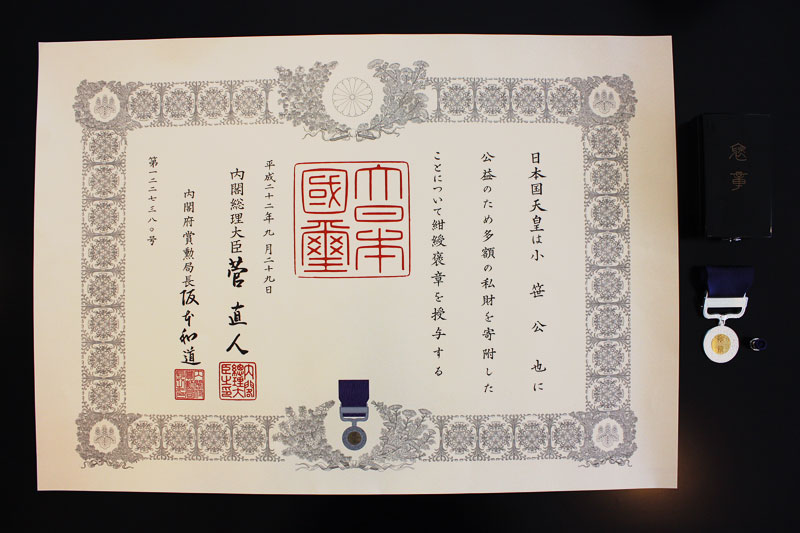 日本国天皇は小笹公也に
公益のため多額の私財を寄附した
ことについて紺綬褒章を授与する
大日本國璽
平成二十二年九月二十九日
内閣総理大臣菅直人
内閣總理大臣之印
内閣府賞勲局長阪本和道
第一二二七三八〇号
褒章